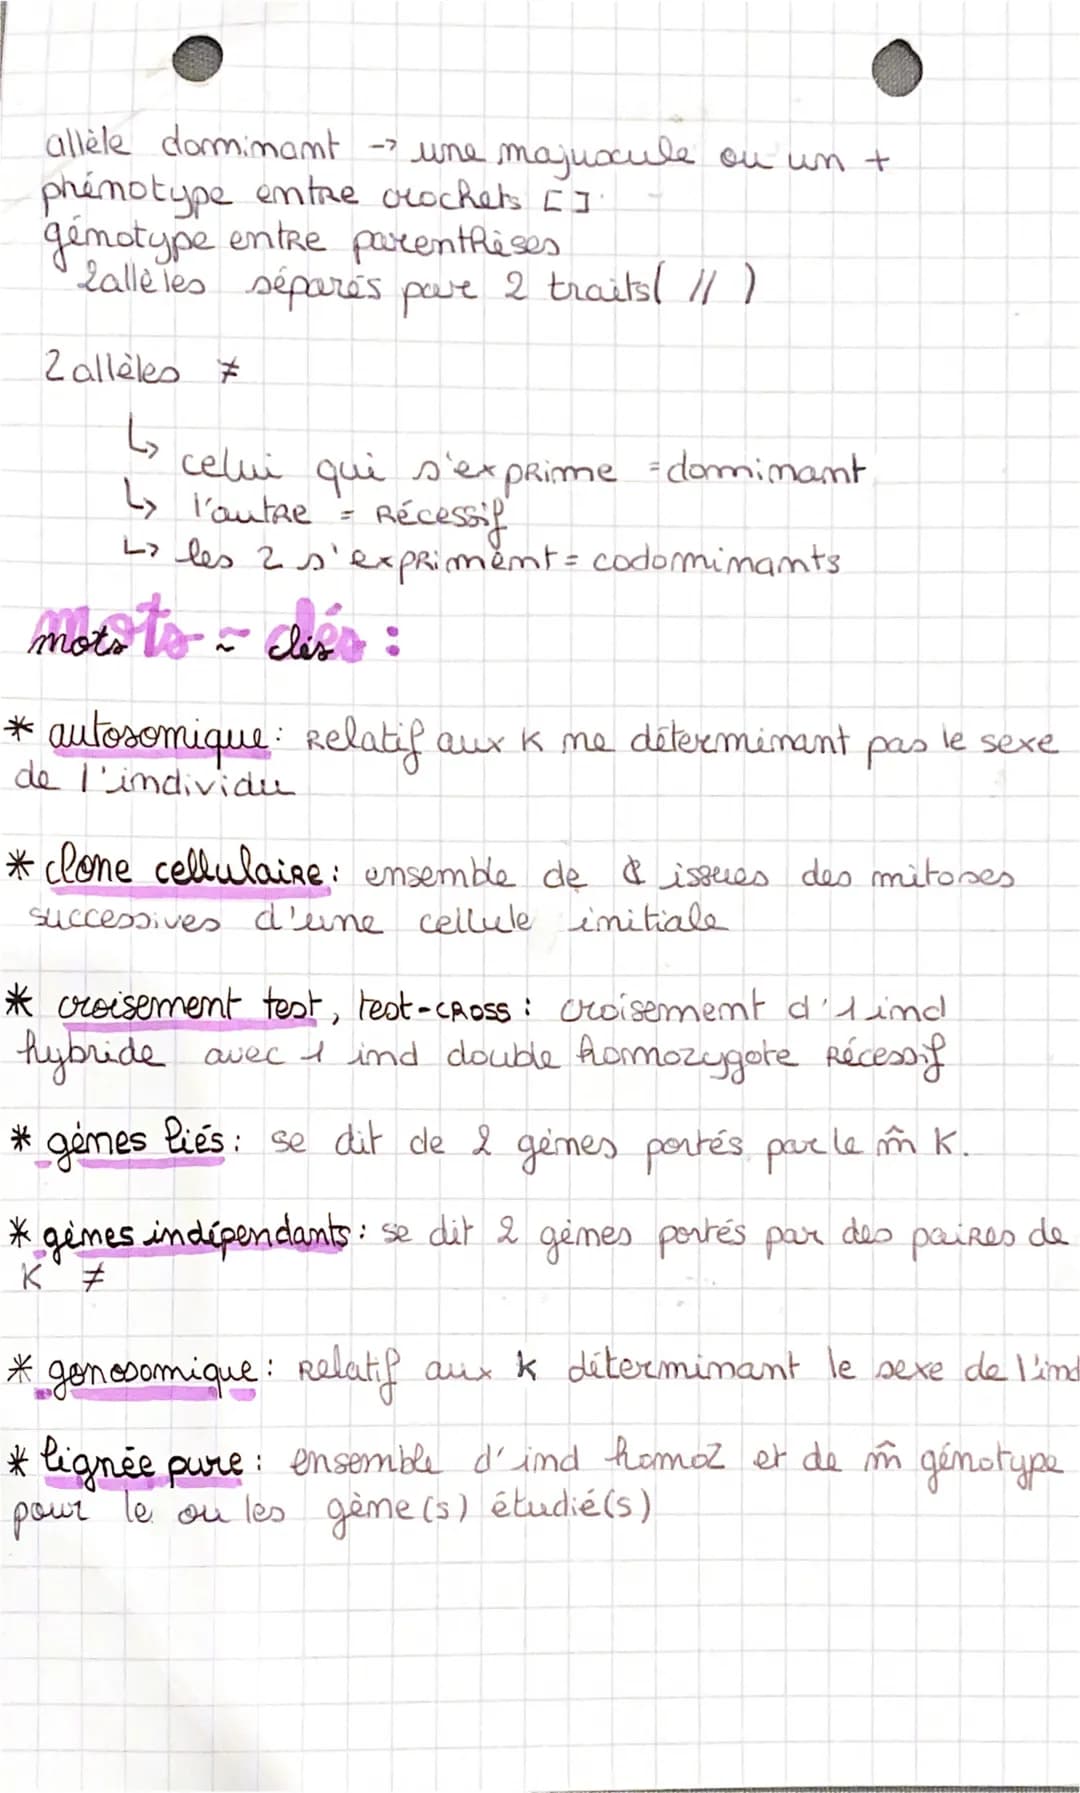 allèle dominant -> une majuscule ou un +
phénotype entre crochets []
génotype entre parenthèses
2 allèles séparés par 2 traits ( // )
2 allèles ≠
↳ celui qui s'exprime = dominant
↳ l'autre = Récessif
↳ les 2 s'expriment = codominants
mots - clés :
* autosomique : Relatif aux K ne déterminant pas le sexe
de l'individu
* clone cellulaire : ensemble de ₵ issues des mitoses
successives d'une cellule initiale
* croisement test, test-cross : croisement d'1 ind
hybride avec 1 ind double homozygote Récessif
* gènes liés : se dit de 2 gènes portés par le m̂ K.
* gènes indépendants : se dit 2 gènes portés par des paires de
K ≠
* gonosomique : Relatif aux K déterminant le sexe de l'ind
* lignée pure : ensemble d'ind homoz et de m̂ génotype
pour le ou les gène(s) étudié(s)